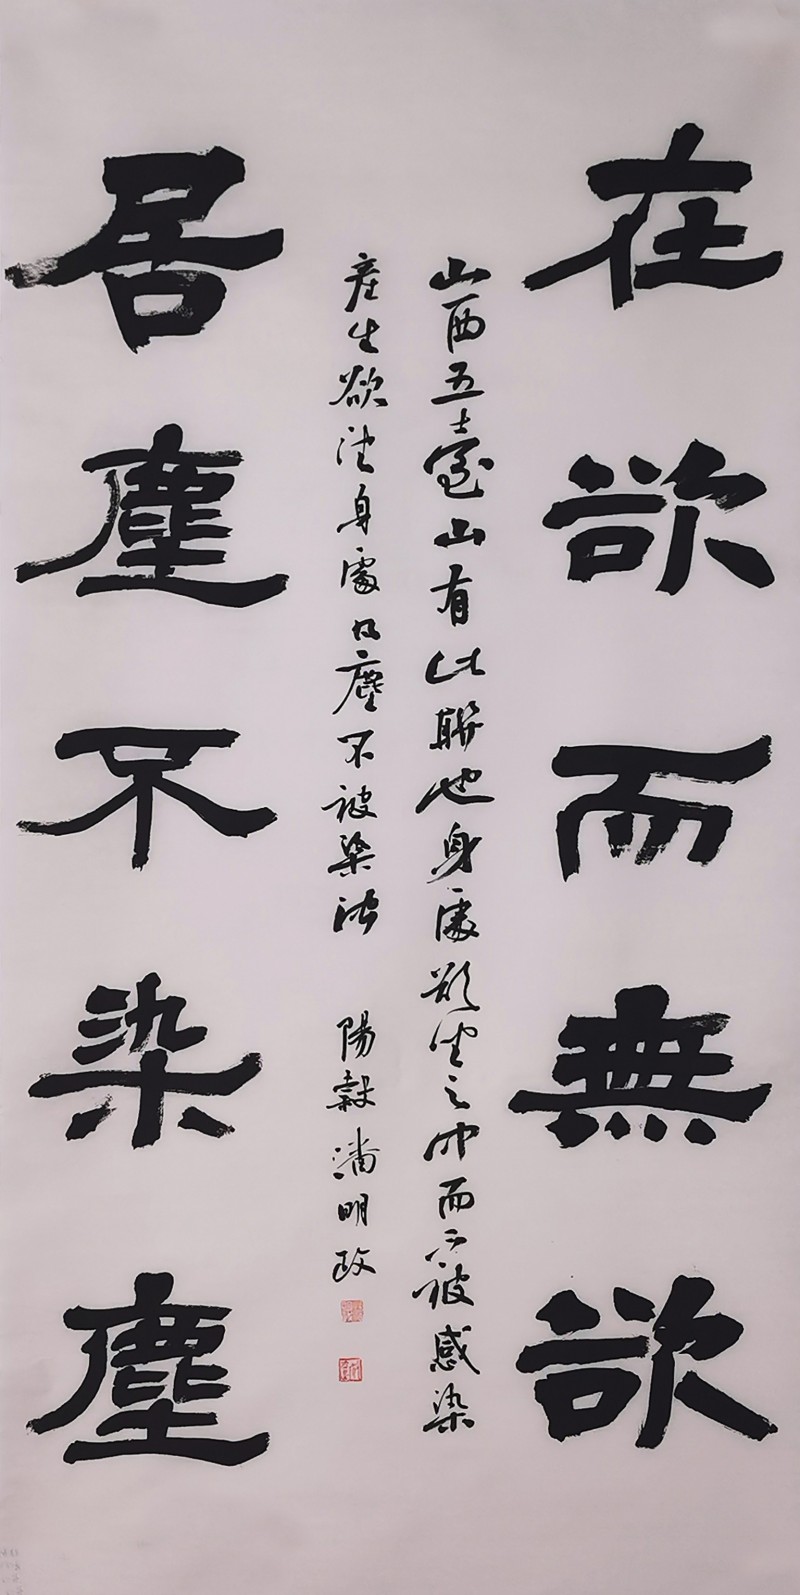 在欲而無欲
山西五臺山有此聯也身處欲望之中而不被感染
產生欲望身處紅塵不被染活 陽穀潘明政
居塵不染塵